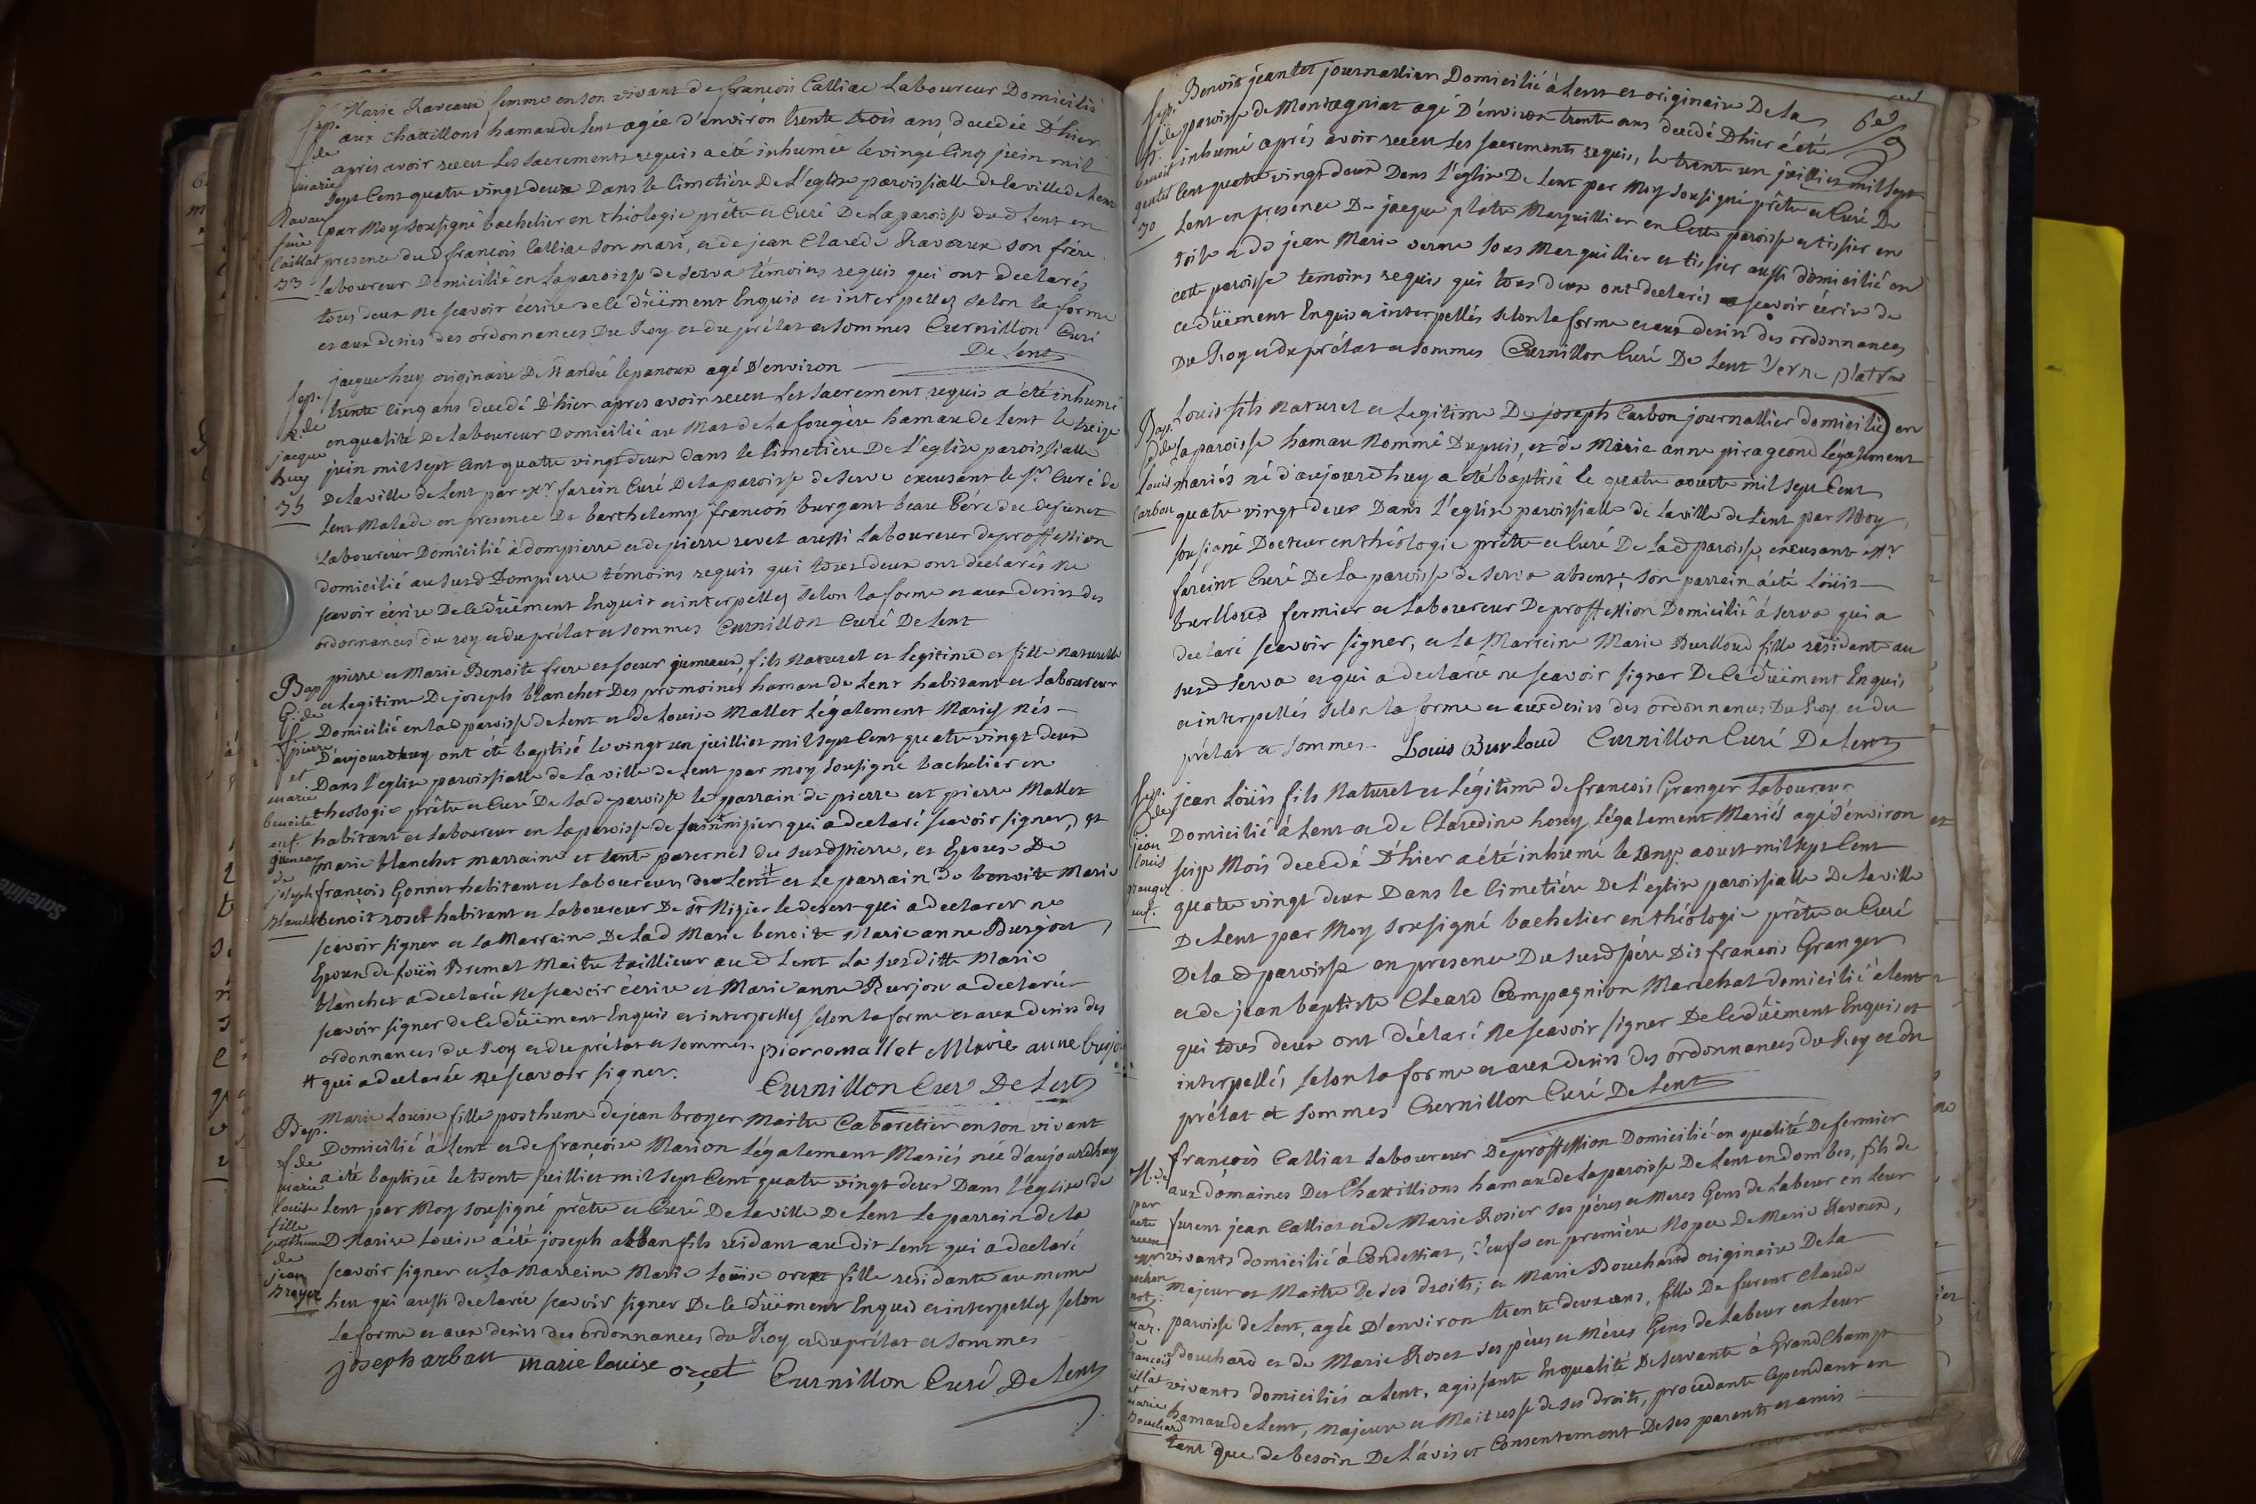 Marie Ravaux femme en son vivant de françois Calliat Laboureur Domicilié
aux Chattillons hamau de Lent agée d'environ trente trois ans decedée D'hier
après avoir receu Les sacrements requis a été inhumée le vingt Cinq juin mil
sept Cent quatre vingt deux Dans le Cimetière De L'eglise paroissialle de la ville de Lent
par Moy sousigné bachelier en théologie prêtre et Curé De La paroisse dud Lent en
presence dud françois Calliat son mari, et de jean Claude Ravaux son frère
laboureur Domicilié en La paroisse de Serva témoins requis qui ont declarés
tous deux ne scavoir écrire de ce düement Enquis et interpellés selon la forme
et aux desirs des ordonnances Du Roy et du prélat et sommes Curnillon Curé
De Lent
Sep.
de
marie
Ravau
fme
Caillat
33
jaque huy originaire De St andré lepanoux agé D'environ
trente Cinq ans decedé D'hier apres avoir receu Les sacrement requis a été inhumé
en qualité De laboureur Domicilié au Mas de La fougère hamau de Lent le treize
juin mil sept Cent quatre vingt deux dans le Cimetière De L'église paroissialle
De la ville de Lent par Mr farein Curé De La paroisse de Serve excusant le sr Curé de
Lent Malade en presence De barthelemy françois burgant beau Père dud Defunct
Laboureur Domicilié à dompierre et de pierre revel aussi Laboureur de proffession
domicilié au susd Dompierre témoins requis qui tous deux ont déclarés ne
scavoir écrire De ce düement Enquis et interpellés selon la forme et aux desirs des
ordonnances du roy et du prélat et sommes Curnillon Curé De Lent
Sep.
de
jacque
huy
35
pierre et Marie Benoite frere et soeur gumeaux, fils Naturel et Legitime et fille naturelle
et Legitime De joseph blanchet Des promoines hamau de Lent habitant et Laboureur
Domicilié en lad paroisse de Lent et de Louise Mallet Legalement Mariés nés
D'aujourdhuy ont été baptisé le vingt un juilliet mil sept Cent quatre vingt deux
Dans l'eglise paroissialle de la ville de Lent par moy sousigné bachelier en
theologie prêtre et Curé De lad paroisse le parrain de pierre est pierre Mallet
habitant et Laboureur en La paroisse de saint nizier qui a declaré scavoir signer, et
marie blanchet marraine et tante paternel du susd pierre, et Epouse De
françois Gonnet habitant et Laboureur de Lent # et Le parrain de benoite Marie
benoit roset habitant et Laboureur De St Nizier le desert qui a declarer ne
scavoir signer et La Marraine De Lad Marie benoite Marie anne Burjou
Epoux de Loüis Bremal Maitre taillieur aud Lent La susditte Marie
blanchet a declarée ne scavoir ecrire et Marie anne Burjou a declarée
scavoir signer de Ce Düement Enquis et interpellés selon la forme et aux desirs des
ordonnances du Roy et du prélat et sommes. pierre mallet Marie anne burjou
# qui a declarée ne scavoir signer. Curnillon Curé De Lent
Bap
G. de
f.
pierre
et
marie
benoite
enf.
gumeaux
de
joseph
blanchet
Marie Louise fille posthume de jean broyer Maitre Cabaretier en son vivant
Domicilié à Lent et de françoise Marion Légalement Mariés née d'aujourdhuy
a été baptisée le trent juilliet mil sept Cent quatre vingt deux Dans l'eglise de
Lent par Moy sousigné prêtre et Curé De la ville De Lent Le parrain de la
D Marie Louise a été joseph alban fils residant audit Lent qui a declaré
scavoir signer et La Marreine Marie Loüise orcet fille residante au meme
lieu qui aussi declarée scavoir signer De Ce Düement Enquis et interpellés selon
La forme et aux desirs des ordonnances du Roy et du prélat et sommes
joseph arban marie louise orcet Curnillon Curé De Lent
Bap.
f. de
marie
Louise
fille
posthume
de
jean
Broyer
Benoit jeantet journallier Domicilié à Lent et originaire De la
paroisse de Montagniat agé D'environ trente ans decedé D'hier a été
inhumé aprés avoir receu Les sacrements requis, le trente un juilliet mil sept
Cent quatre vingt deux Dans l'eglise De Lent par Moy sousigné prêtre et Curé De
Lent en presence De jacque platre Marguillier en Cette paroisse et tissier en
toile et de jean Marie verne sous Marguillier et tissier aussi domicilié en
cette paroisse temoins requis qui tous deux ont declarés scavoir écrire de
ce düement Enquis et interpellés selon la forme et aux desirs des ordonnances
Du Roy et du prélat et sommes Curnillon Curé De Lent Verne platre
Sep.
de
benoit
gentet
30
Louis fils naturel et Legitime De joseph Carbon journallier domicilié en
La paroisse hamau Nommé Dupuis, et de Marie anne pirageond Légalement
mariés né d'aujourdhuy a été baptisé le quatre aoust mil sept Cent
quatre vingt deux Dans l'église paroissialle de la ville de Lent par Moy
sousigné Docteur en théologie prêtre et Curé De Lad paroisse, excusant Mr
fareint Curé De La paroisse de Serva absent; son parrein a été Loüis
burlloud fermier et Laboureur De proffession Domicilié à Serva qui a
declaré scavoir signer, et la Marreine Marie Burlloud fille residante au
susd Serva et qui a declarée ne scavoir signer De Ce düement Enquis
et interpellés selon la forme et aux desirs des ordonnances Du Roy et du
prélat et sommes. Louis Burloud Curnillon Curé De Lent
Bap.
de
Louis
Carbon
jean Loüis fils Naturel et Légitime de françois Granger Laboureur
Domicilié à Lent et de Claudine hosey Légalement Mariés agé d'environ
seize Mois decedé D'hier a été inhumé le onze aoust mil sept Cent
quatre vingt deux Dans le Cimetière De l'eglise paroissialle De la ville
De Lent par Moy sousigné bachelier en théologie prêtre et Curé
De lad paroisse en presence Du susd père Dis françois Granger
et de jean baptiste Cleard Compagnion Marechal domicilié à Lent
qui tous deux ont déclaré Ne scavoir signer De Ce düement Enquis et
interpellés selon la forme et aux desirs des ordonnances du Roy et du
prélat et sommes Curnillon Curé De Lent
Sep.
de
jean
Louis
Granger
enf.
françois Calliat Laboureur De proffession Domicilié en qualité De fermier
aux domaines Des Chattillions hamau de La paroisse De Lent en dombes, fils de
furent jean Calliat et de Marie Rosier ses pères et Meres Gens de Labeur en Leur
vivants domicilié à Condessiat, Veuf en première Nopce De Marie Ravoux,
majeur et Maitre De ses droits; et Marie Bouchard originaire De La
paroisse de Lent, agée D'environ trente deux ans, fille De furent Claude
Bouchard et de Marie Roset ses pères et Mères Gens de Labeur en Leur
vivants domiciliés a Lent, agissante En qualité De servante à Grand Champt
hamau de Lent, majeure et Maitresse de ses droits, procedante Cependant en
tant que de besoin De L'avis et Consentement De ses parents et amis
M. de
par
acte
receu
pochon
not.
mar.
de
françois
Caillat
et
marie
Bouchard